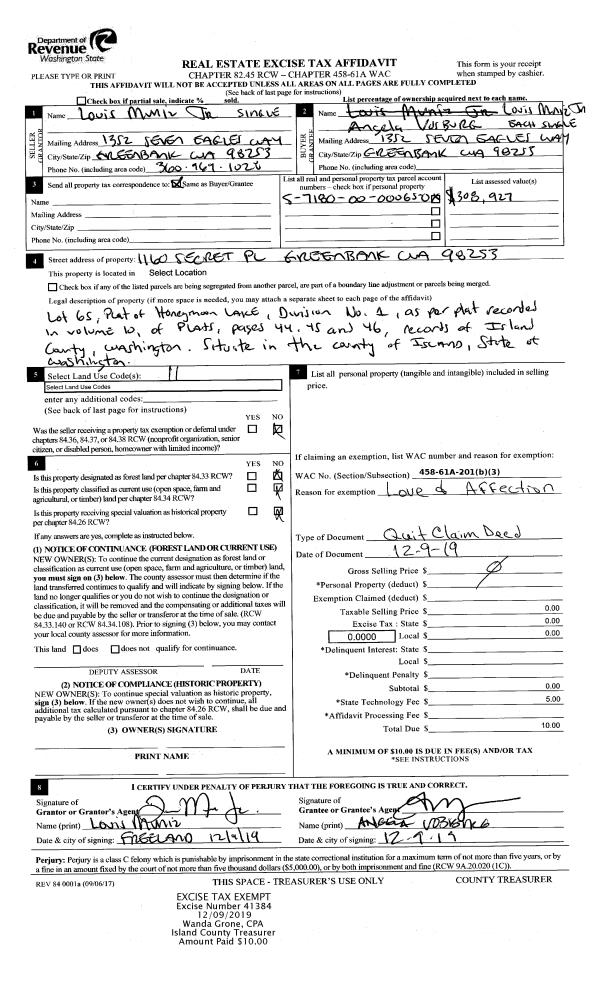 Department of
Revenue
Washington State
REAL ESTATE EXCISE TAX AFFIDAVIT
This form is your receipt
PLEASE TYPE OR PRINT
CHAPTER 82.45 RCW – CHAPTER 458-61A WAC
when stamped by cashier.
THIS AFFIDAVIT WILL NOT BE ACCEPTED UNLESS ALL AREAS ON ALL PAGES ARE FULLY COMPLETED
(See back of last page for instructions)
Check box if partial sale, indicate % sold.
List percentage of ownership acquired next to each name.
1
Name Louis Muniz Jr SINGLE
SELLER
GRANTOR
Mailing Address 1352 SEVEN EAGLES WAY
City/State/Zip GREENBANK WA 98253
Phone No. (including area code) 360.969.1028
2
Name Louis Muniz Jr Louis Muniz Jr
Angela VOSBURG EACH SINGLE
BUYER
GRANTEE
Mailing Address 1352 SEVEN EAGLES WAY
City/State/Zip GREENBANK WA 98253
Phone No. (including area code)
3
Send all property tax correspondence to: Same as Buyer/Grantee
Name
Mailing Address
City/State/Zip
Phone No. (including area code)
List all real and personal property tax parcel account
numbers – check box if personal property
S-7180-00-00065-0
List assessed value(s)
$308,927
4
Street address of property: 1160 SECRET PL GREENBANK WA 98253
This property is located in Select Location
Check box if any of the listed parcels are being segregated from another parcel, are part of a boundary line adjustment or parcels being merged.
Legal description of property (if more space is needed, you may attach a separate sheet to each page of the affidavit)
Lot 65, Plat of Honeymoon LAKE, Division No. 1, as per plat recorded
in volume 10, of Plats, pages 44, 45 and 46, records of Island
County, Washington. Situate in the county of Island, State of
Washington.
5
Select Land Use Code(s): 11
Select Land Use Codes
enter any additional codes:
(See back of last page for instructions)
YES NO
Was the seller receiving a property tax exemption or deferral under
chapters 84.36, 84.37, or 84.38 RCW (nonprofit organization, senior
citizen, or disabled person, homeowner with limited income)?
6
YES NO
Is this property designated as forest land per chapter 84.33 RCW?
Is this property classified as current use (open space, farm and
agricultural, or timber) land per chapter 84.34 RCW?
Is this property receiving special valuation as historical property
per chapter 84.26 RCW?
If any answers are yes, complete as instructed below.
(1) NOTICE OF CONTINUANCE (FOREST LAND OR CURRENT USE)
NEW OWNER(S): To continue the current designation as forest land or
classification as current use (open space, farm and agriculture, or timber) land,
you must sign on (3) below. The county assessor must then determine if the
land transferred continues to qualify and will indicate by signing below. If the
land no longer qualifies or you do not wish to continue the designation or
classification, it will be removed and the compensating or additional taxes will
be due and payable by the seller or transferor at the time of sale. (RCW
84.33.140 or RCW 84.34.108). Prior to signing (3) below, you may contact
your local county assessor for more information.
This land does does not qualify for continuance.
DEPUTY ASSESSOR DATE
(2) NOTICE OF COMPLIANCE (HISTORIC PROPERTY)
NEW OWNER(S): To continue special valuation as historic property,
sign (3) below. If the new owner(s) does not wish to continue, all
additional tax calculated pursuant to chapter 84.26 RCW, shall be due and
payable by the seller or transferor at the time of sale.
(3) OWNER(S) SIGNATURE
PRINT NAME
7
List all personal property (tangible and intangible) included in selling
price.
If claiming an exemption, list WAC number and reason for exemption:
WAC No. (Section/Subsection) 458-61A-201(b)(3)
Reason for exemption Love & Affection
Type of Document Quit Claim Deed
Date of Document 12-9-19
Gross Selling Price $
*Personal Property (deduct) $
Exemption Claimed (deduct) $
Taxable Selling Price $ 0.00
Excise Tax : State $ 0.00
0.0000 Local $ 0.00
*Delinquent Interest: State $
Local $
*Delinquent Penalty $
Subtotal $ 0.00
*State Technology Fee $ 5.00
*Affidavit Processing Fee $
Total Due $ 10.00
A MINIMUM OF $10.00 IS DUE IN FEE(S) AND/OR TAX
*SEE INSTRUCTIONS
8
I CERTIFY UNDER PENALTY OF PERJURY THAT THE FOREGOING IS TRUE AND CORRECT.
Signature of
Grantor or Grantor's Agent
Name (print) Louis Muniz
Date & city of signing: FREELAND 12/9/19
Signature of
Grantee or Grantee's Agent
Name (print) ANGELA VOSBURG
Date & city of signing: 12-9-19
Perjury: Perjury is a class C felony which is punishable by imprisonment in the state correctional institution for a maximum term of not more than five years, or by
a fine in an amount fixed by the court of not more than five thousand dollars ($5,000.00), or by both imprisonment and fine (RCW 9A.20.020 (1C)).
REV 84 0001a (09/06/17)
THIS SPACE - TREASURER'S USE ONLY
COUNTY TREASURER
EXCISE TAX EXEMPT
Excise Number 41384
12/09/2019
Wanda Grone, CPA
Island County Treasurer
Amount Paid $10.00